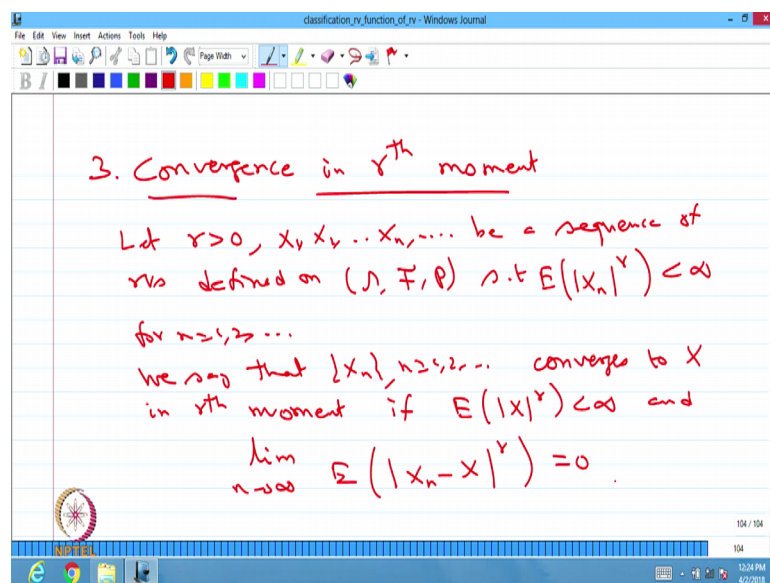 classification_rv_function_of_rv - Windows Journal
File Edit View Insert Actions Tools Help
Page Width
B I
3. Convergence in rth moment
Let r>0, X1, X2, ... Xn, .... be a sequence of
rvs defined on (Ω, F, P) s.t E(|Xn|^r) < ∞
for n=1,2, ...
We say that {Xn}, n=1,2, ... converges to X
in rth moment if E(|X|^r) < ∞ and
lim n→∞ E(|Xn-X|^r) = 0.
NPTEL
104 / 104
104
12:24 PM
4/2/2018